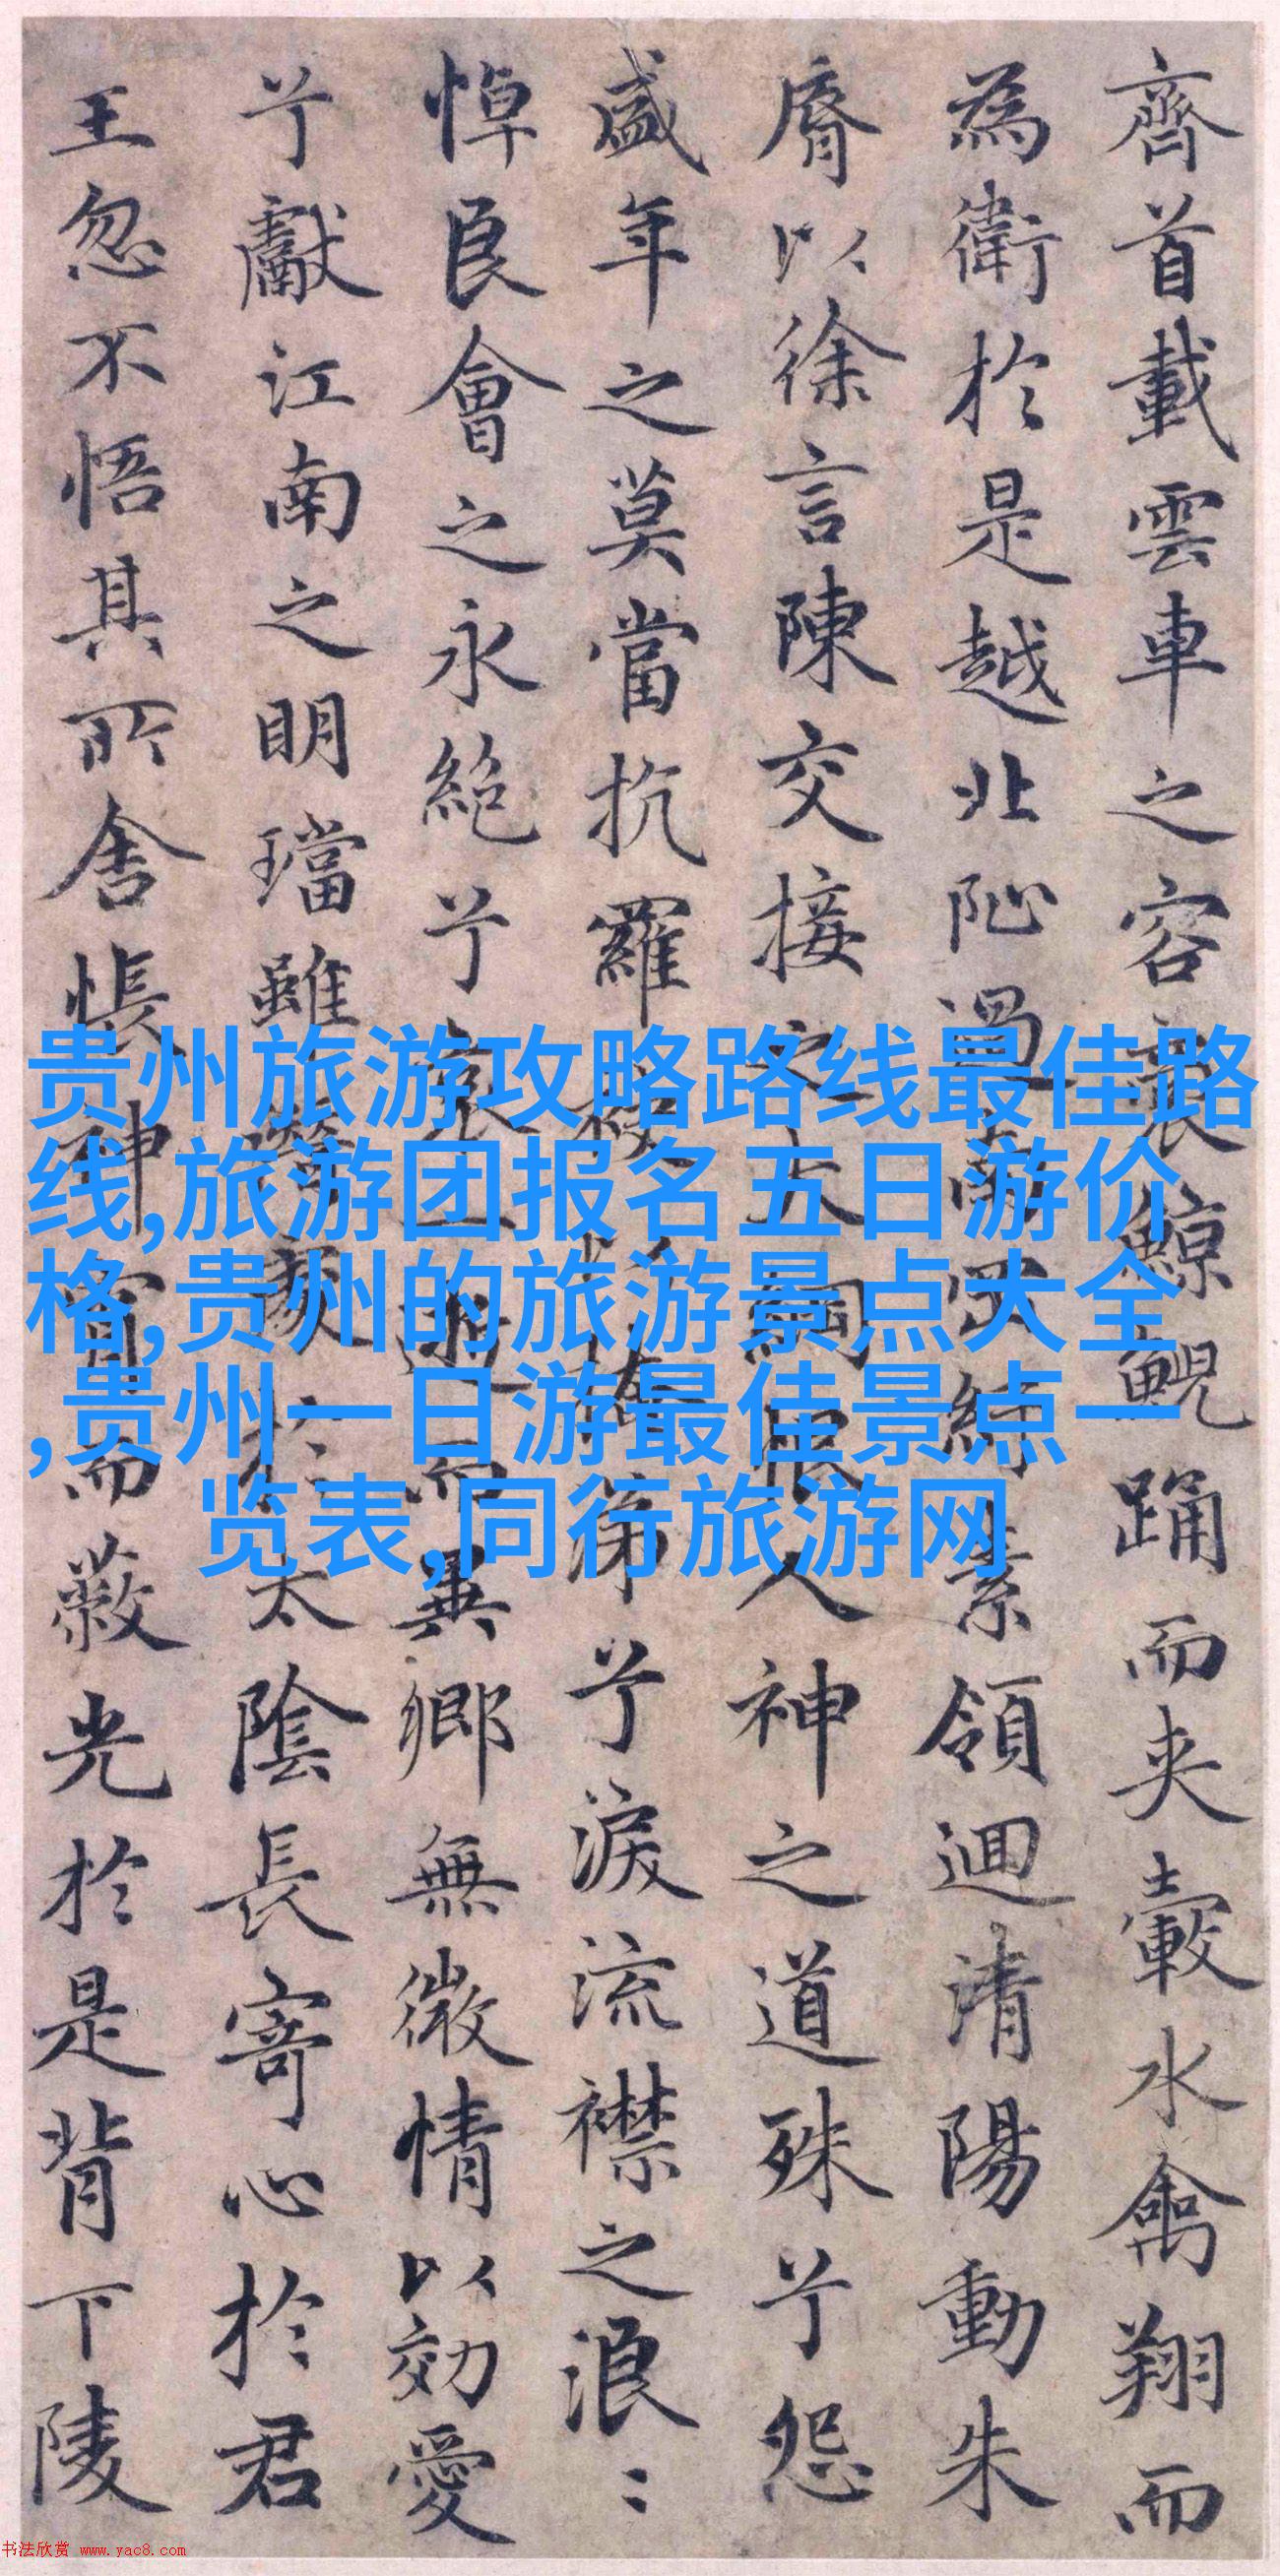 齊首載雲車之容裔鯨鯢踊而夾轂水禽翔而
為衛於是越北沚過南岡紆素領迴清陽動朱
脣以徐言陳交接之大綱恨人神之道殊兮怨
盛年之莫當抗羅袂以掩涕兮淚流襟之浪〻
悼良會之永絕兮哀一逝而異鄉無微情以効愛
兮獻江南之明璫雖潛處於太陰長寄心於君
王忽不悟其所舍悵神宵而蔽光於是背下陵
贵州旅游攻略路线最佳路
线,旅游团报名五日游价
格,贵州的旅游景点大全
,贵州一日游最佳景点一
览表,同行旅游网
书法欣赏 www.yac8.com